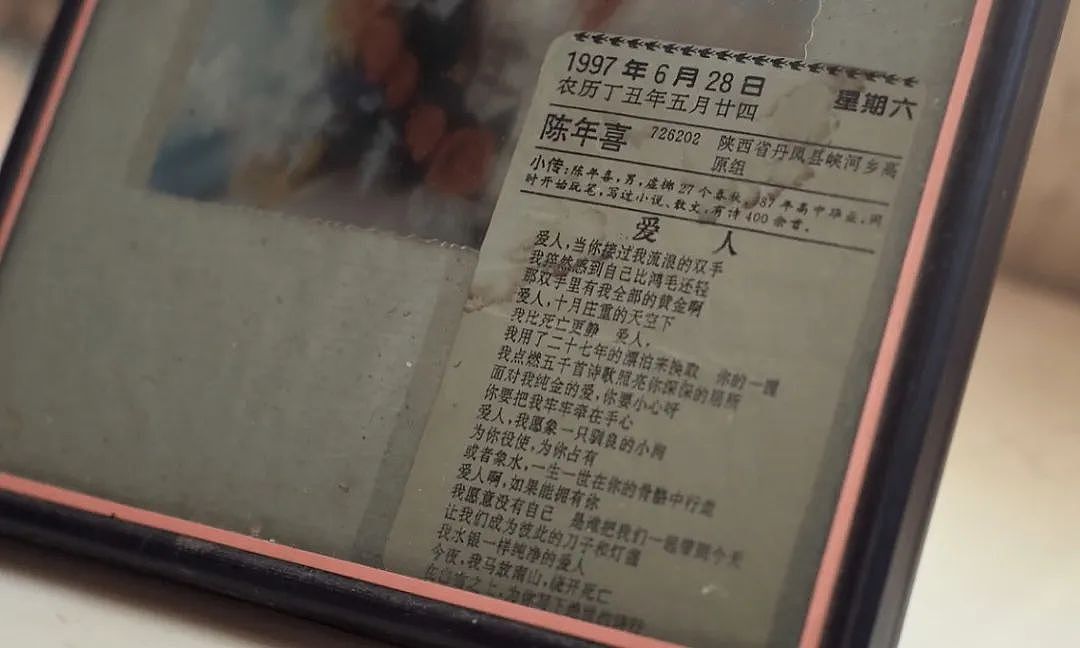 1997年6月28日 星期六
农历丁丑年五月廿四
陈年喜 726202 陕西省丹凤县峡河乡高
原组
小传:陈年喜,男,虚掷27个春秋,87年高中毕业,同
时开始玩笔,写过小说、散文,有诗400余首。
爱人
爱人,当你接过我流浪的双手
我猝然感到自己比鸿毛还轻
那双手里有我全部的黄金啊
爱人,十月庄重的天空下
我比死亡更静 爱人,
我用了二十七年的漂泊来换取 你的一面
我点燃五千首诗歌照亮你深深的居所
面对我纯金的爱,你要小心呀
你要把我牢牢牵在手心
爱人,我愿象一只驯良的小狗
为你役使,为你占有
或者象水,一生一世在你的骨骼中行走
爱人啊,如果能拥有你
我愿意没有自己 是谁把我们一起带到今天
让我们成为彼此的刀子和灯盏
我水银一样纯净的爱人
今夜,我马放南山,绕开死亡
在
之上,为你写下绝世的诗行